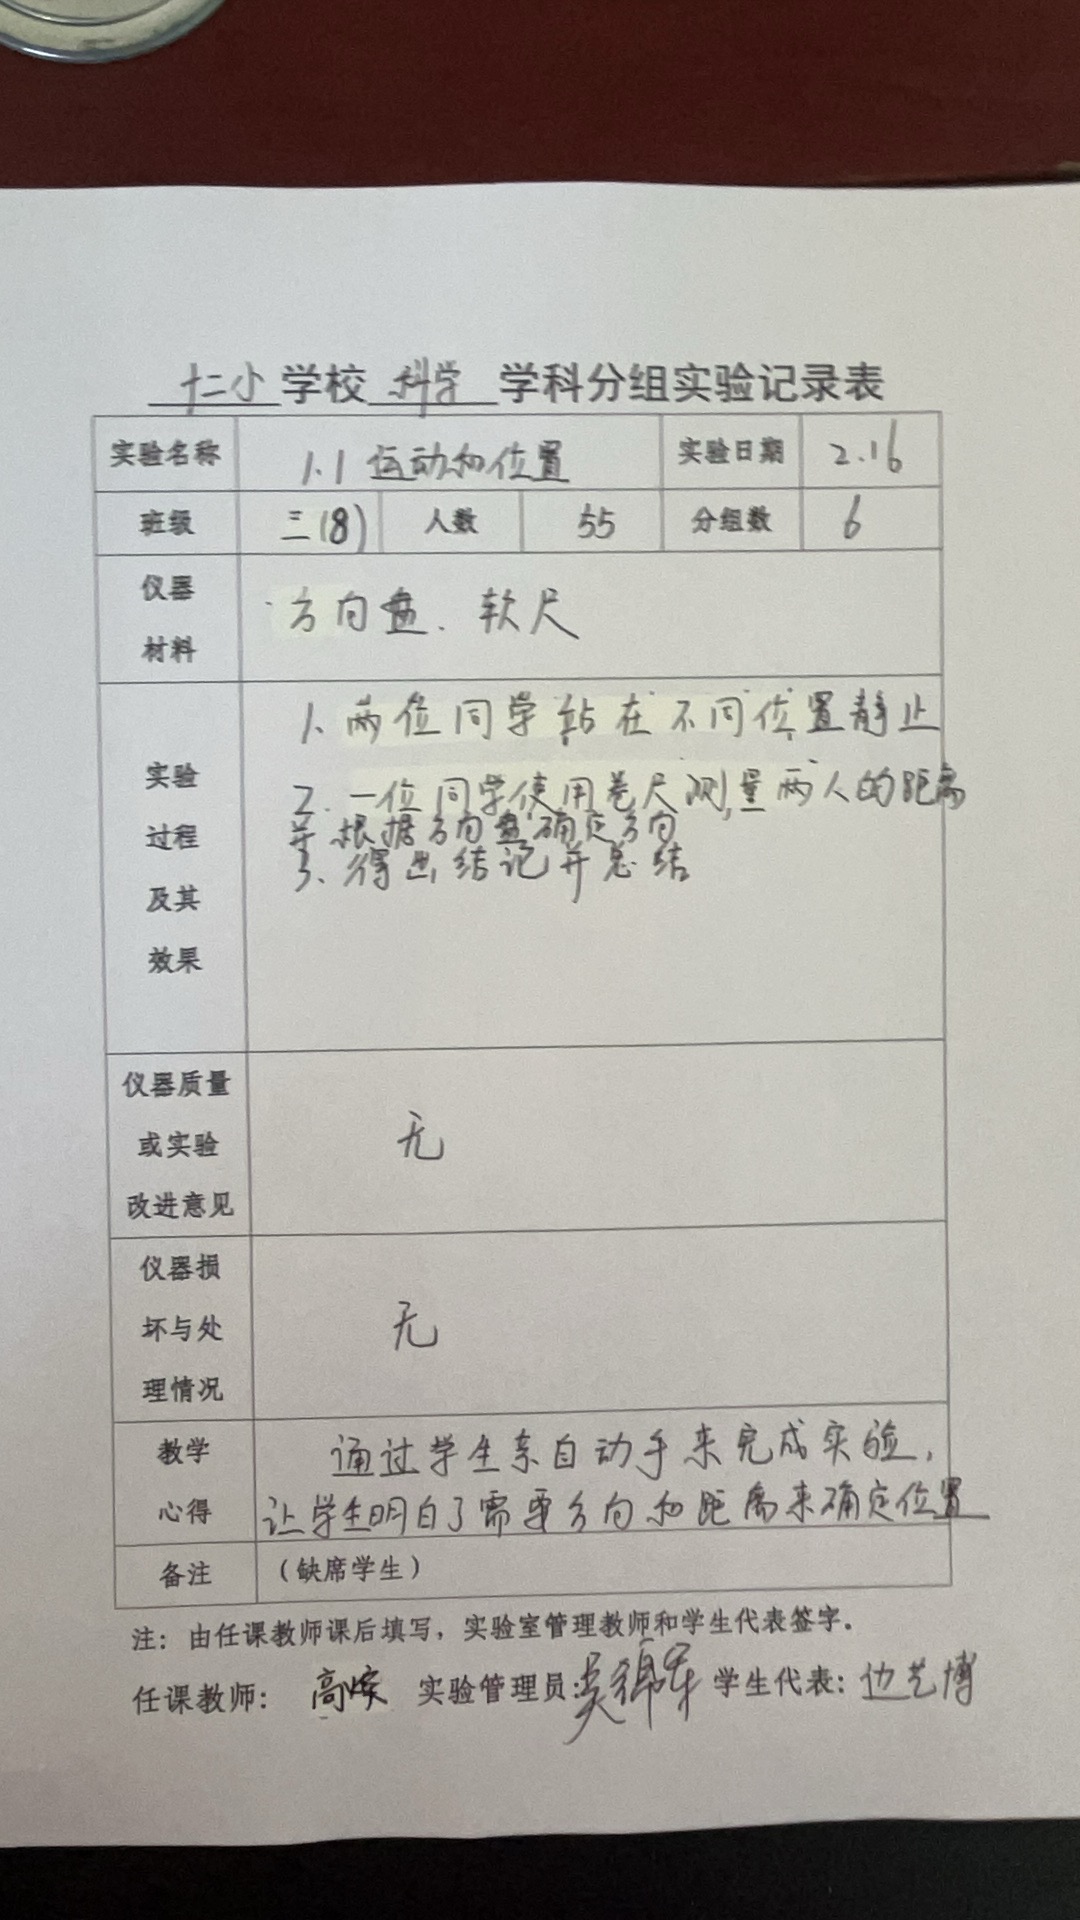 十二小学校 科学 学科分组实验记录表
实验名称 1.1 运动和位置 实验日期 2.16
班级 三(8) 人数 55 分组数 6
仪器
材料
方向盘、软尺
实验
过程
及其
效果
1、两位同学站在不同位置静止
2、一位同学使用卷尺测量两人的距离
并根据方向盘确定方向
3、得出结记并总结
仪器质量
或实验
改进意见
无
仪器损
坏与处
理情况
无
教学
心得
通过学生亲自动手来完成实验,
让学生明白了需要方向和距离来确定位置
备注 (缺席学生)
注:由任课教师课后填写,实验室管理教师和学生代表签字。
任课教师: 实验管理员: 学生代表:边艺博